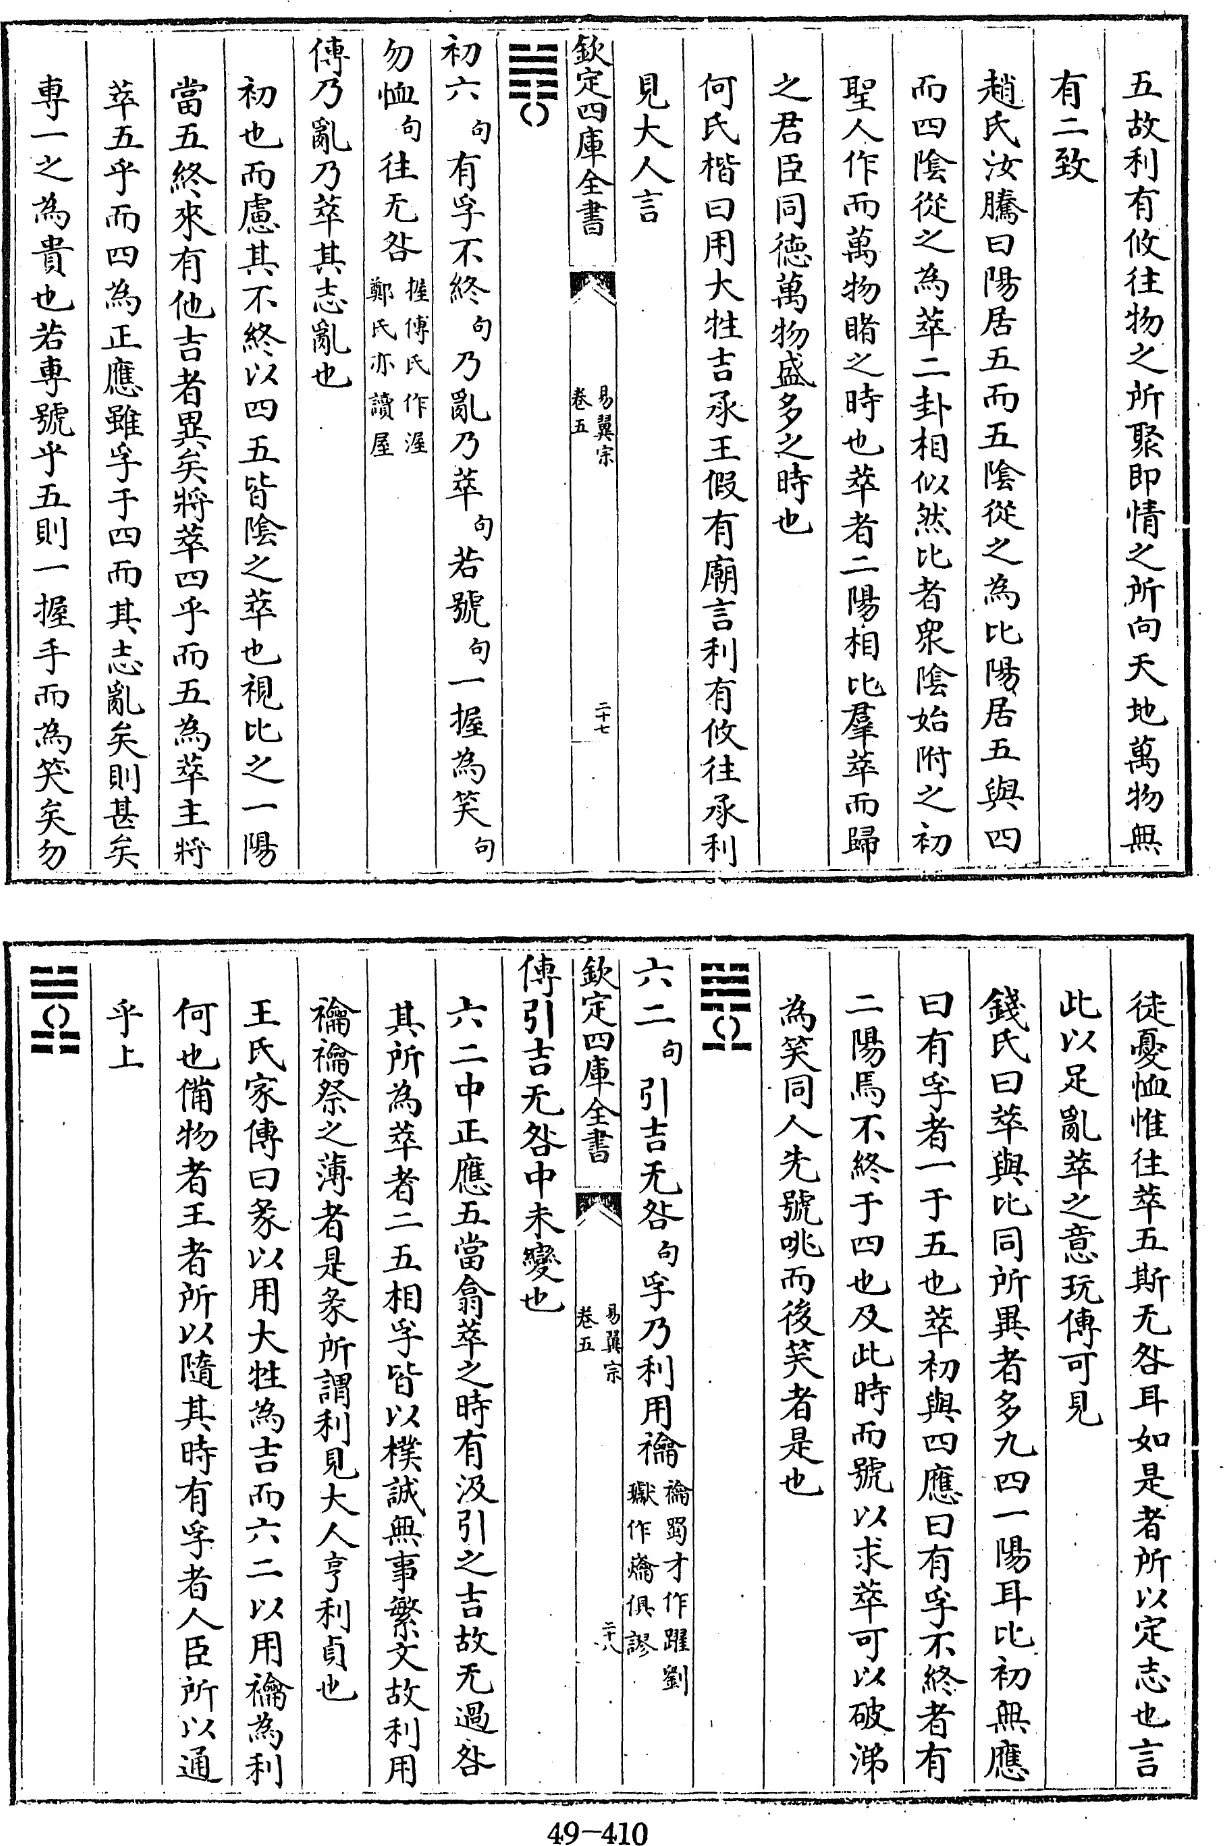 五故利有攸往物之所聚即情之所向天地萬物無
有二致
趙氏汝騰曰陽居五而五陰從之為比陽居五與四
而四陰從之為萃二卦相似然比者衆陰始附之初
聖人作而萬物睹之時也萃者二陽相比羣萃而歸
之君臣同德萬物盛多之時也
何氏楷曰用大牲吉承王假有廟言利有攸往承利
見大人言
欽定四庫全書
易翼宗
卷五
二十七
初六句有孚不終句乃亂乃萃句若號句一握為笑句
勿恤句往无咎握傅氏作渥
鄭氏亦讀屋
傳乃亂乃萃其志亂也
初也而慮其不終以四五皆陰之萃也視比之一陽
當五終來有他吉者異矣將萃四乎而五為萃主將
萃五乎而四為正應雖孚于四而其志亂矣則甚矣
專一之為貴也若專號乎五則一握手而為笑矣勿
徒憂恤惟往萃五斯无咎耳如是者所以定志也言
此以足亂萃之意玩傳可見
錢氏曰萃與比同所異者多九四一陽耳比初無應
曰有孚者一于五也萃初與四應曰有孚不終者有
二陽焉不終于四也及此時而號以求萃可以破涕
為笑同人先號咷而後笑者是也
六二句引吉无咎句孚乃利用禴禴蜀才作躍劉
瓛作爚俱謬
欽定四庫全書
易翼宗
卷五
二十八
傳引吉无咎中未變也
六二中正應五當翕萃之時有汲引之吉故无過咎
其所為萃者二五相孚皆以樸誠無事繁文故利用
禴禴祭之薄者是彖所謂利見大人亨利貞也
王氏家傳曰彖以用大牲為吉而六二以用禴為利
何也備物者王者所以隨其時有孚者人臣所以通
乎上
49-410